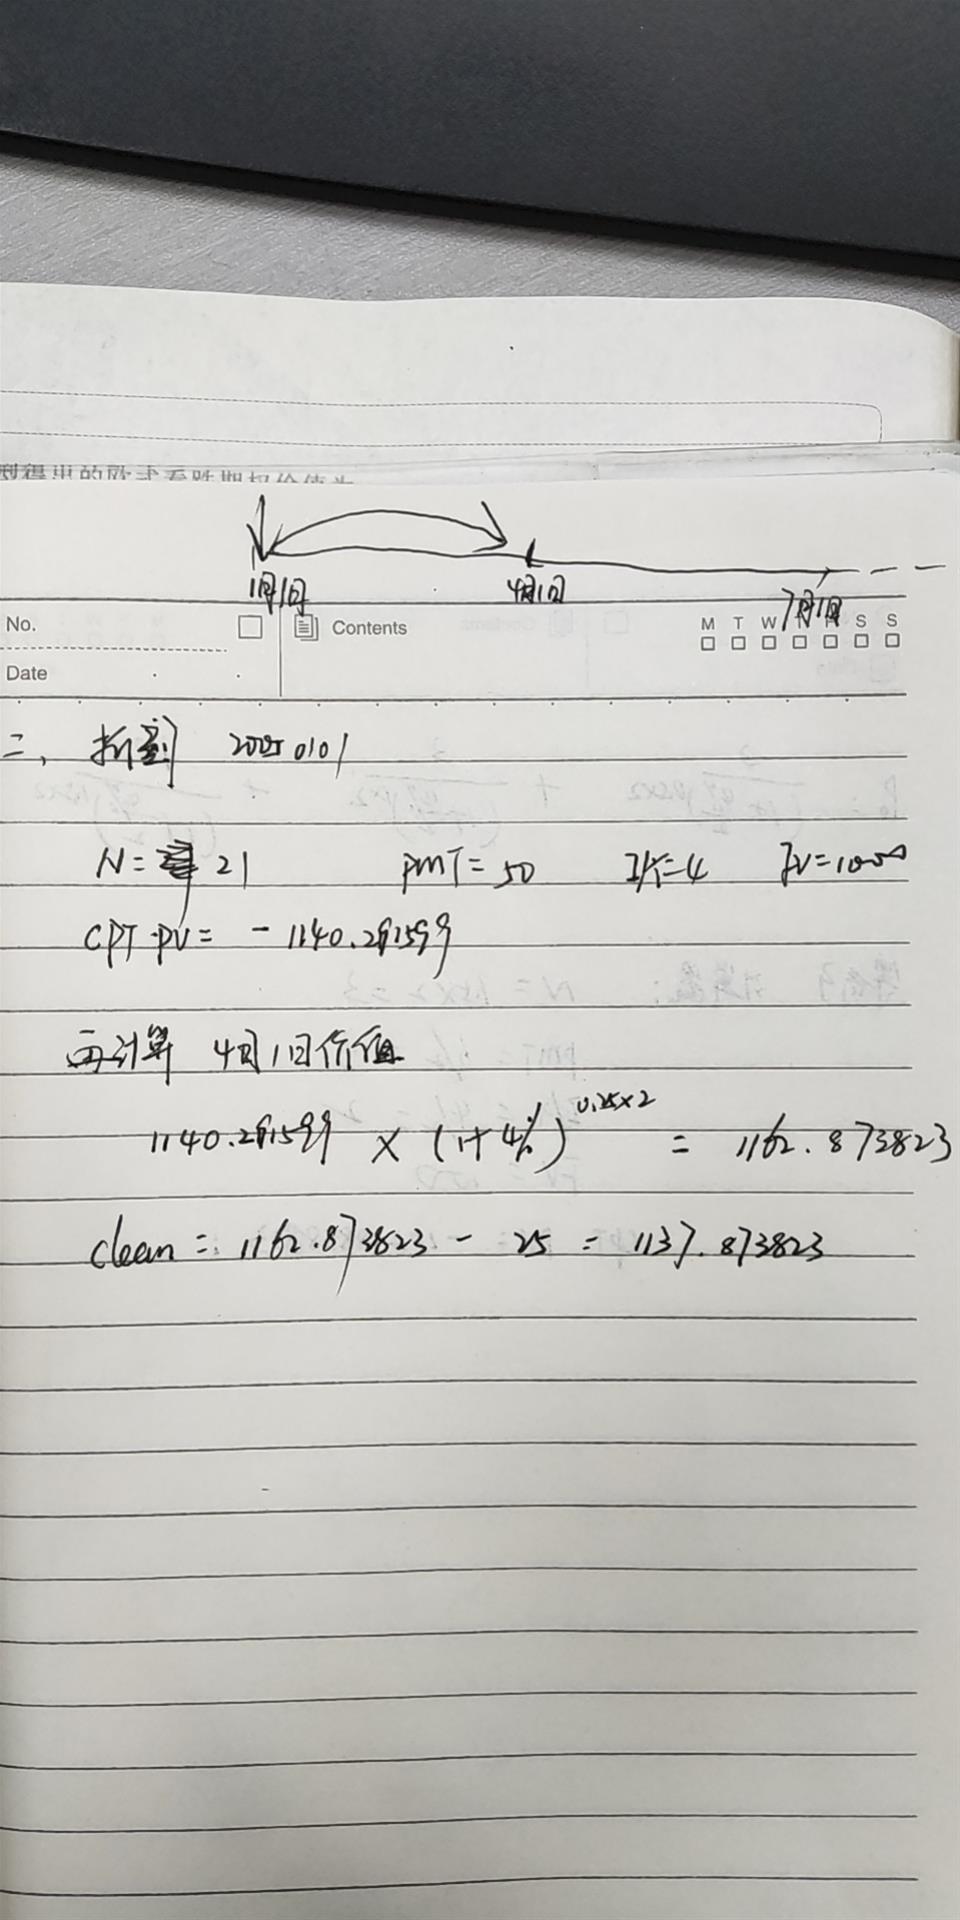 型得出的欧式看跌期权价值为
1月1日 4月1日 7月1日
No. Contents M T W T F S S
Date
二、折到 20050101
N= 21 PMT= 50 I/Y=4 FV=1000
CPT PV= - 1140.291599
再计算 4月1日价值
1140.291599 × (1+4%)^0.25×2 = 1162.873823
clean = 1162.873823 - 25 = 1137.873823